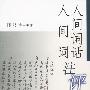 人间词话
人间词注
评